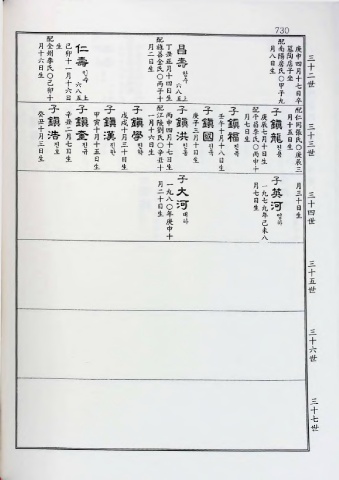 730
三十二世
庚申四月十七日卒
墓陶店子坐
配南陽房氏〇甲子九
月八日生
昌壽 창수 六八五上
丁丑正月十四日生
配雜善金氏〇丙子十
月二日生
仁壽 인수 六八五上
己卯十一月十六日
生
配全州李氏〇己卯十
月十六日生
三十三世
配仁同張氏〇庚辰三
月十五日生
子鎭龍 진용
庚辰七月十日生
配平昌李氏〇丙申十
月七日生
子鎭福 진복
壬午十月八日生
子鎭國 진국
庚子三月十日生
子鎭洪 진홍
丙申四月十七日生
配江陵劉氏〇辛丑十
一月十六日生
子鎭漢 진한
戊戌十月三十日生
子鎭學 진학
甲辰十月十五日生
子鎭奎 진규
辛丑二月七日生
子鎭浩 진호
癸丑十月三日生
三十四世
月三十日生
子英河 영하
一九七九年己未八
月七日生
子大河 대하
一九八〇年庚申十
月二十日生
三十五世
三十六世
三十七世